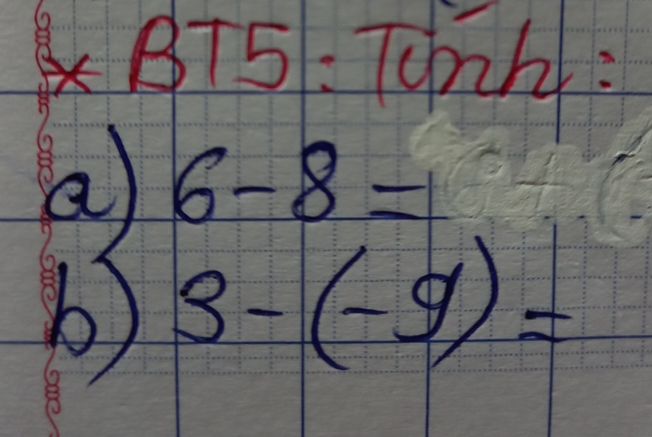 * BT5: Tính:
a) 6 - 8 =
b) 3 - (-9) =